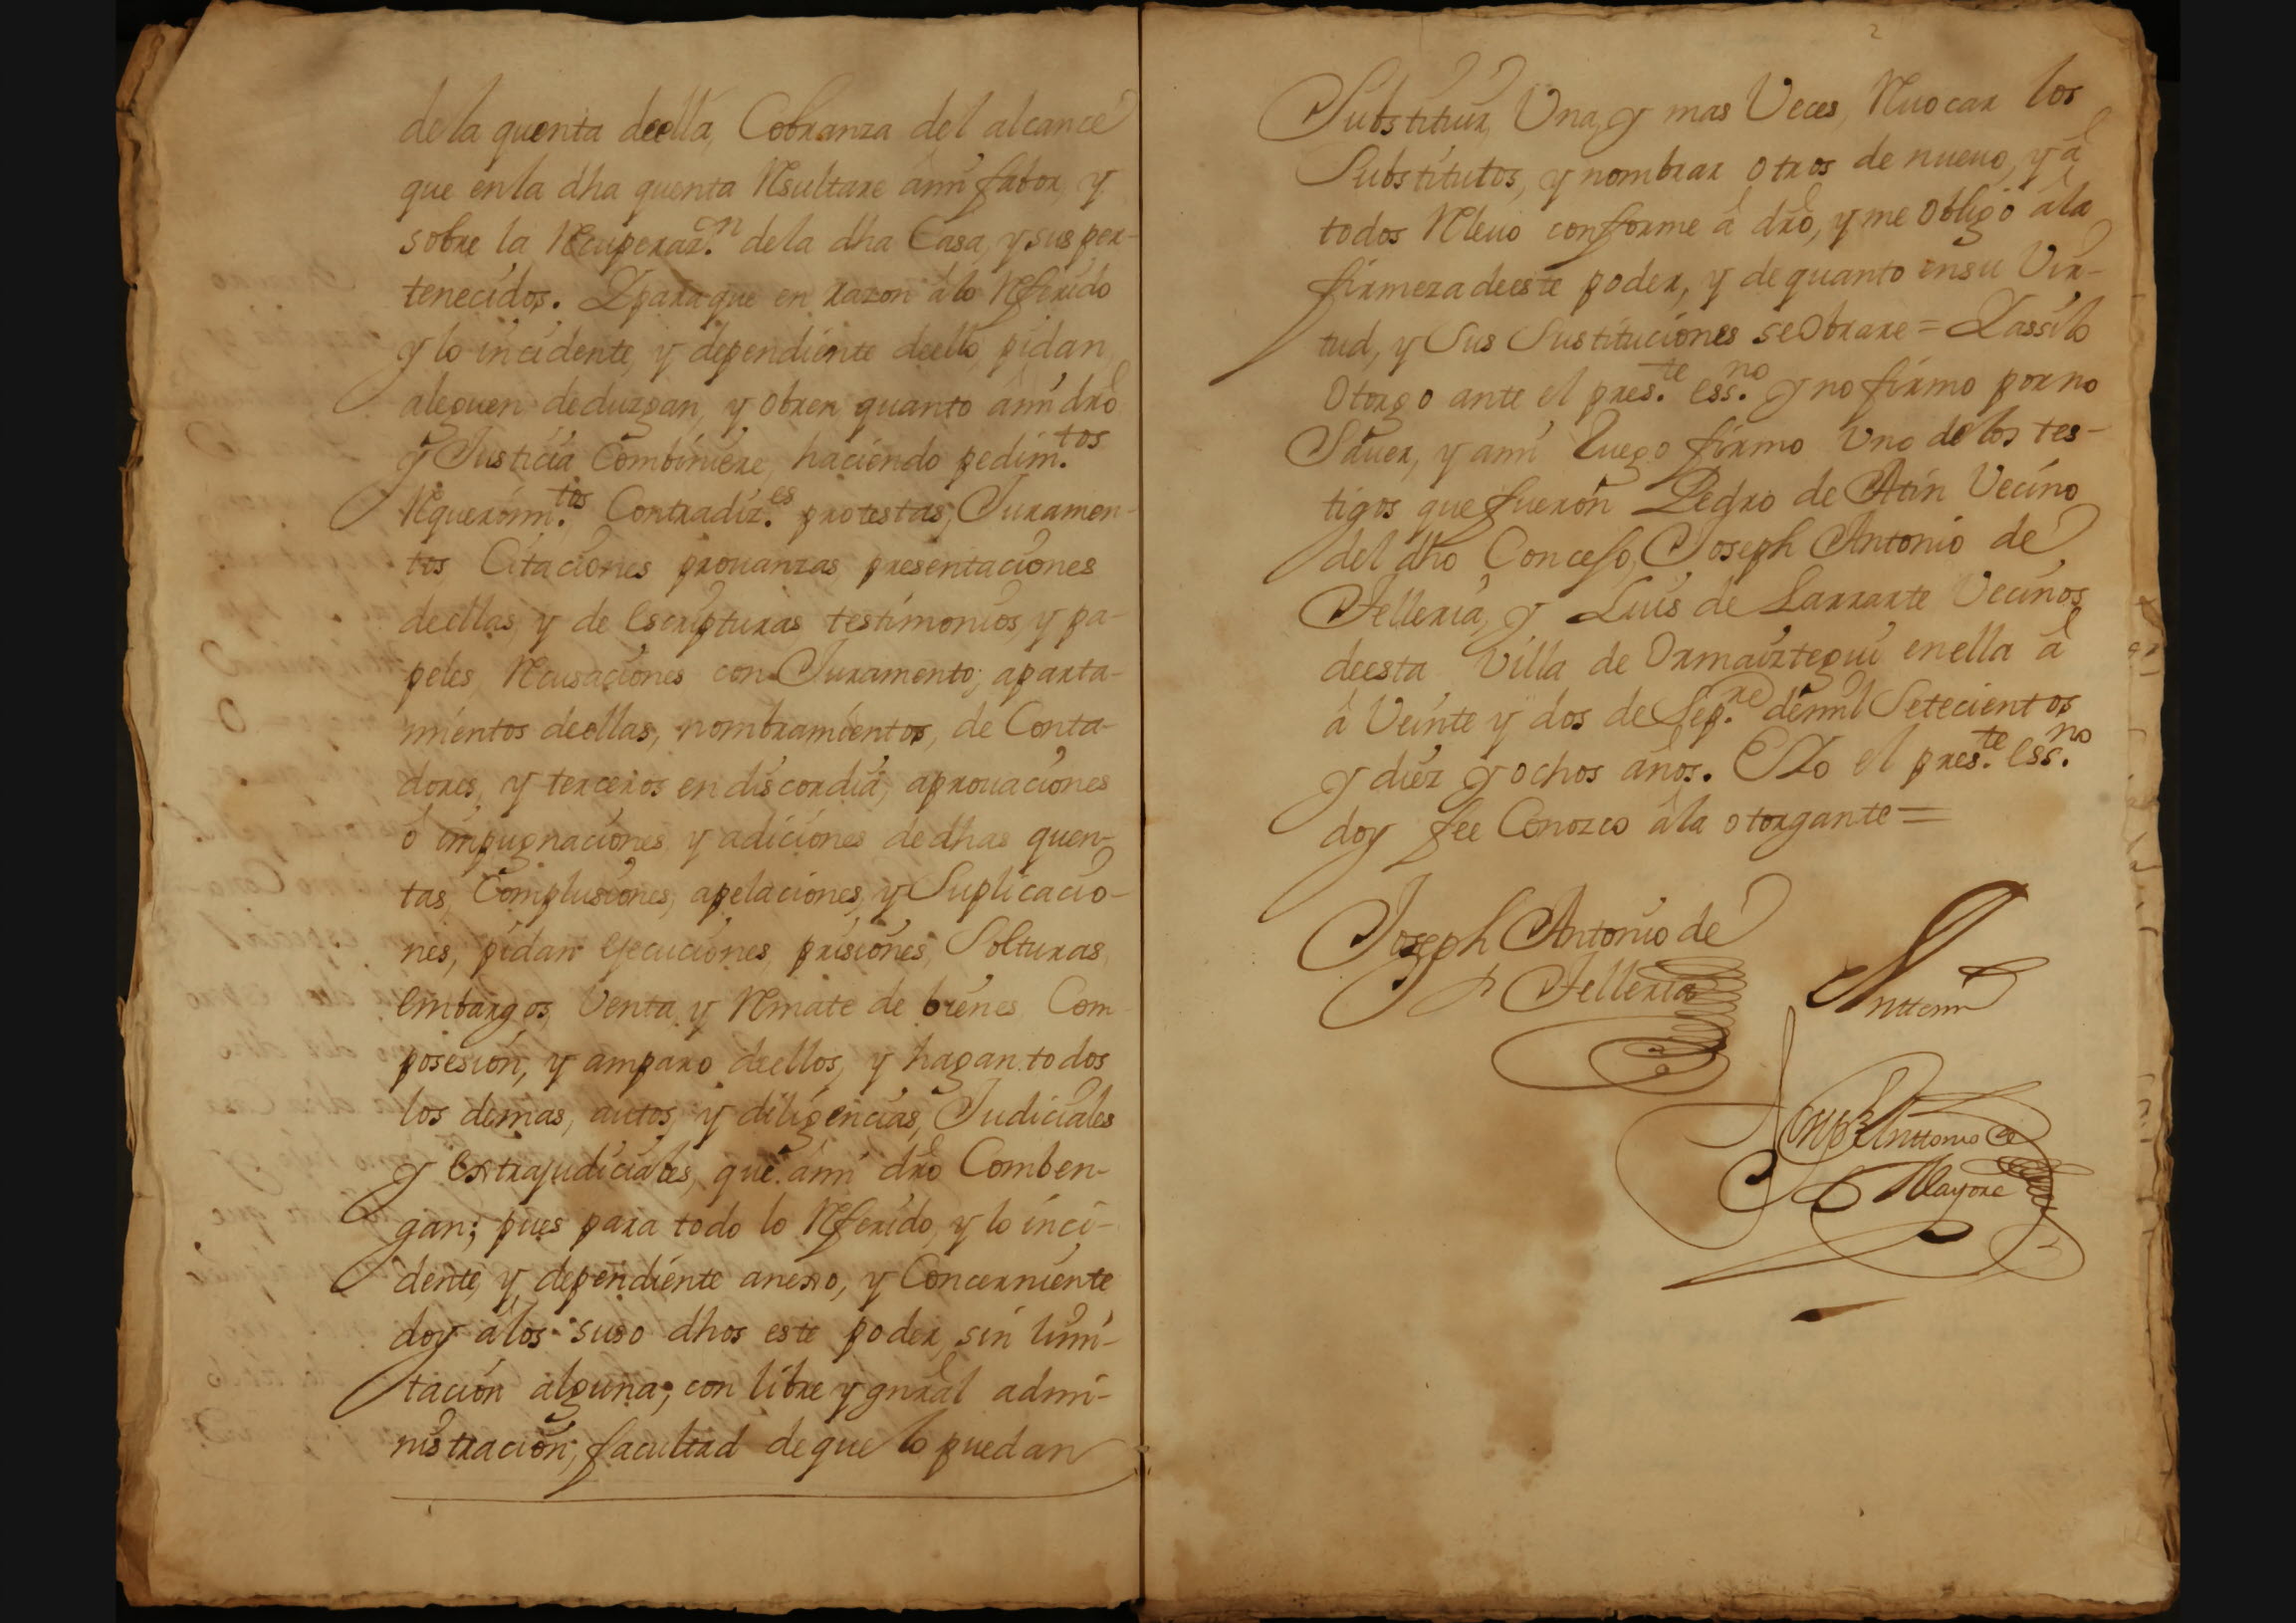 de la quenta deella, Cobranza del alcance
que en la dha quenta Resultare ámi fabor, y
sobre la Recuperaz.n de la dha Casa, y sus per-
tenecidos. Y para que en razon álo Referido
y lo incidente, y dependiente deello, pidan
aleguen deduzgan, y obren quanto ámi dro
y Justicia Combiniere, haciendo pedim.tos
Requerim.tos Contradiz.es protestas, Juramen-
tos Citaciones prouanzas presentaciones
deellas, y de Escripturas testimonios, y pa-
peles, Recusaciones con Juramento; aparta-
mientos deellas, nombramientos, de Conta-
dores, y terceros en discordia, aprouaciones
ó impugnaciones y adiciones de dhas quen-
tas, Complusiones, apelaciones, y Suplicacio-
nes, pidan Ejecuciones, prisiones, Solturas,
embargos, Venta, y Remate de bienes, Com
posesion, y amparo deellos, y hagan todos
los demas, autos, y diligencias, Judiciales
y Extrajudiciales, que ámi dro Comben-
gan; pues para todo lo Referido, y lo inci-
dente, y, dependiente anexo, y Concerniente
doy á los suso dhos este poder, sin limi-
tacion alguna; con libre y gnral admi-
nistracion; facultad de que lo puedan
2
Substituir, Una, y mas Veces, Reuocar los
Substitutos, y nombrar otros de nueuo, y á
todos Releuo conforme á dro, y me obligo ála
firmeza deeste poder, y de quanto en su Vir-
tud, y Sus Sustituciones se Obrare = Y assi lo
Otorgo ante el pres.te ess.no y no firmo por no
Sauer, y ami Ruego firmo Uno de los tes-
tigos que fueron Pedro de Atin Vecino
del dho Concejo, Joseph Antonio de
Telleria, y Luis de Larrarte Vecinos
deesta Villa de Ormaiztegui en ella á
á Veinte y dos de Sep.re de mil Setecientos
y diez y ochos años. E Yo el pres.te ess.no
doy fee Conozco ála otorgante =
Joseph Antonio de
Telleria
Anttemi
Anttonio de
Mayora